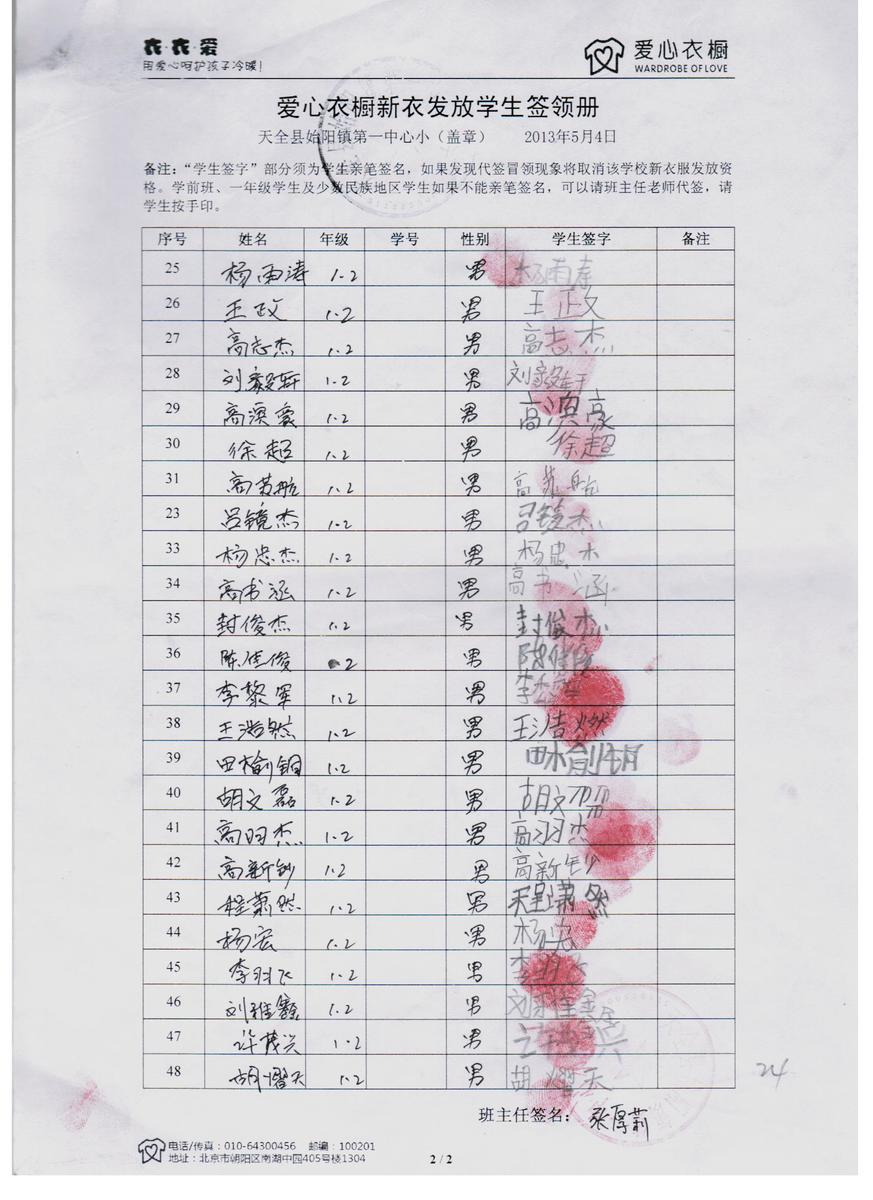 衣·衣·爱
用爱心呵护孩子冷暖！
爱心衣橱
WARDROBE OF LOVE
爱心衣橱新衣发放学生签领册
天全县始阳镇第一中心小（盖章） 2013年5月4日
备注：“学生签字”部分须为学生亲笔签名，如果发现代签冒领现象将取消该学校新衣服发放资
格。学前班、一年级学生及少数民族地区学生如果不能亲笔签名，可以请班主任老师代签，请
学生按手印。
序号 姓名 年级 学号 性别 学生签字 备注
25 杨雨涛 1.2 男 杨雨涛
26 王政 1.2 男 王正文
27 高志杰 1.2 男 高志杰
28 刘毅轩 1.2 男 刘毅轩
29 高溟豪 1.2 男 高溟豪
30 徐超 1.2 男 徐超
31 高苏航 1.2 男 高苏航
23 吕镜杰 1.2 男 吕镜杰
33 杨忠杰 1.2 男 杨忠木
34 高书涵 1.2 男 高书涵
35 封俊杰 1.2 男 封俊杰
36 陈佳俊 2 男 陈佳俊
37 李黎军 1.2 男 李
38 王浩然 1.2 男 王浩燃
39 田榆铜 1.2 男 田榆
40 胡文磊 1.2 男 胡文
41 高羽杰 1.2 男 高羽杰
42 高新钞 1.2 男 高新钞
43 程萧然 1.2 男 程潇然
44 杨宏 1.2 男 杨宏
45 李羽飞 1.2 男 李羽飞
46 刘雅鑫 1.2 男 刘雅鑫
47 许茂兴 1.2 男 兴
48 胡熠天 1.2 男 胡熠天
24
班主任签名： 张厚莉
电话/传真：010-64300456 邮编：100201
地址：北京市朝阳区南湖中园405号楼1304
2 / 2